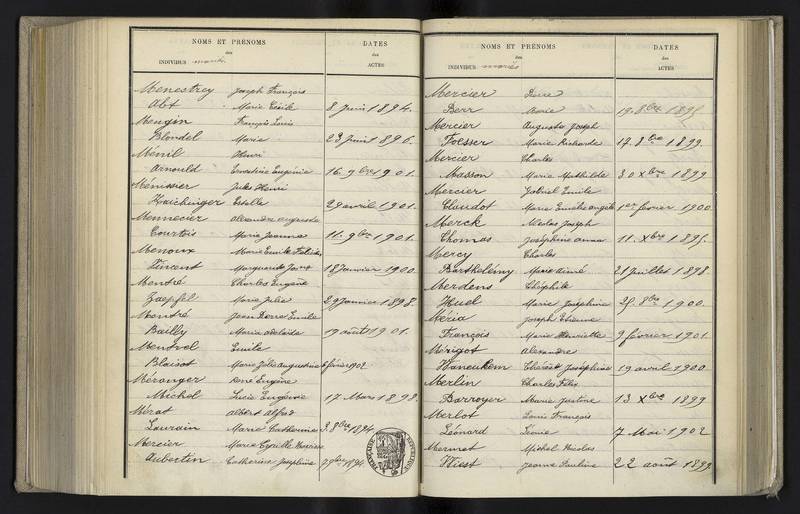 NOMS ET PRÉNOMS DATES
des des
INDIVIDUS mariés ACTES
Menestrey Joseph François
Abt Marie Cécile 8 Juin 1894.
Mengin François Louis
Blondel Marie 23 Juin 1896.
Ménil Henri
Arnould Ernestine Eugénie 16. 9bre 1901.
Ménissier Jules Henri
Estelle 29 avril 1901.
Mennecier alexandre auguste
Courtois Marie Jeanne 11. 9bre 1901.
Menoux Marie Emile
Vincent Marguerite 18 Janvier 1900.
Mentré Charles Eugène
Zaepfel Marie Julie 29 Janvier 1898.
Mentré Jean Pierre Emile
Bailly Marie adelaïde août 1901.
Emile
Blaisot Marie Augustine 6 février 1902
Méranger René Eugène
Michel Lucie Eugénie 17 Mars 1898.
Mérat Albert alfred
Louvain Marie Catherine 3. 8bre 1894
Mercier Marie Cyrille
Aubertin Catherine Joséphine 9bre 1894
NOMS ET PRÉNOMS DATES
des des
INDIVIDUS mariés ACTES
Mercier Pierre
Berr Marie 19. 8bre 1895
Mercier Auguste Joseph
Foesser Marie Richarde 17. 8bre 1899.
Mercier Charles
Masson Marie Mathilde 30 Xbre 1899
Mercier Gabriel Emile
Claudot Marie Emélie angèle 1er février 1900.
Merck Nicolas Joseph
Thomas Joséphine anna 11. Xbre 1895.
Mercy Charles
Barthélémy Marie aimé 21 Juillet 1898.
Merdens Théophile
Huel Marie Joséphine 25. 8bre 1900.
Méria Joseph Etienne
François Marie Henriette 9 février 1901.
Mérigot alexandre
Thérèse Joséphine 19 avril 1900.
Merlin Charles Félix
Barroyer Marie Justine 13 Xbre 1899
Merlot Louis François
Léonard Léonie 7 Mai 1902
Mermet Michel Nicolas
Hiest Jeanne Pauline 22 août 1899